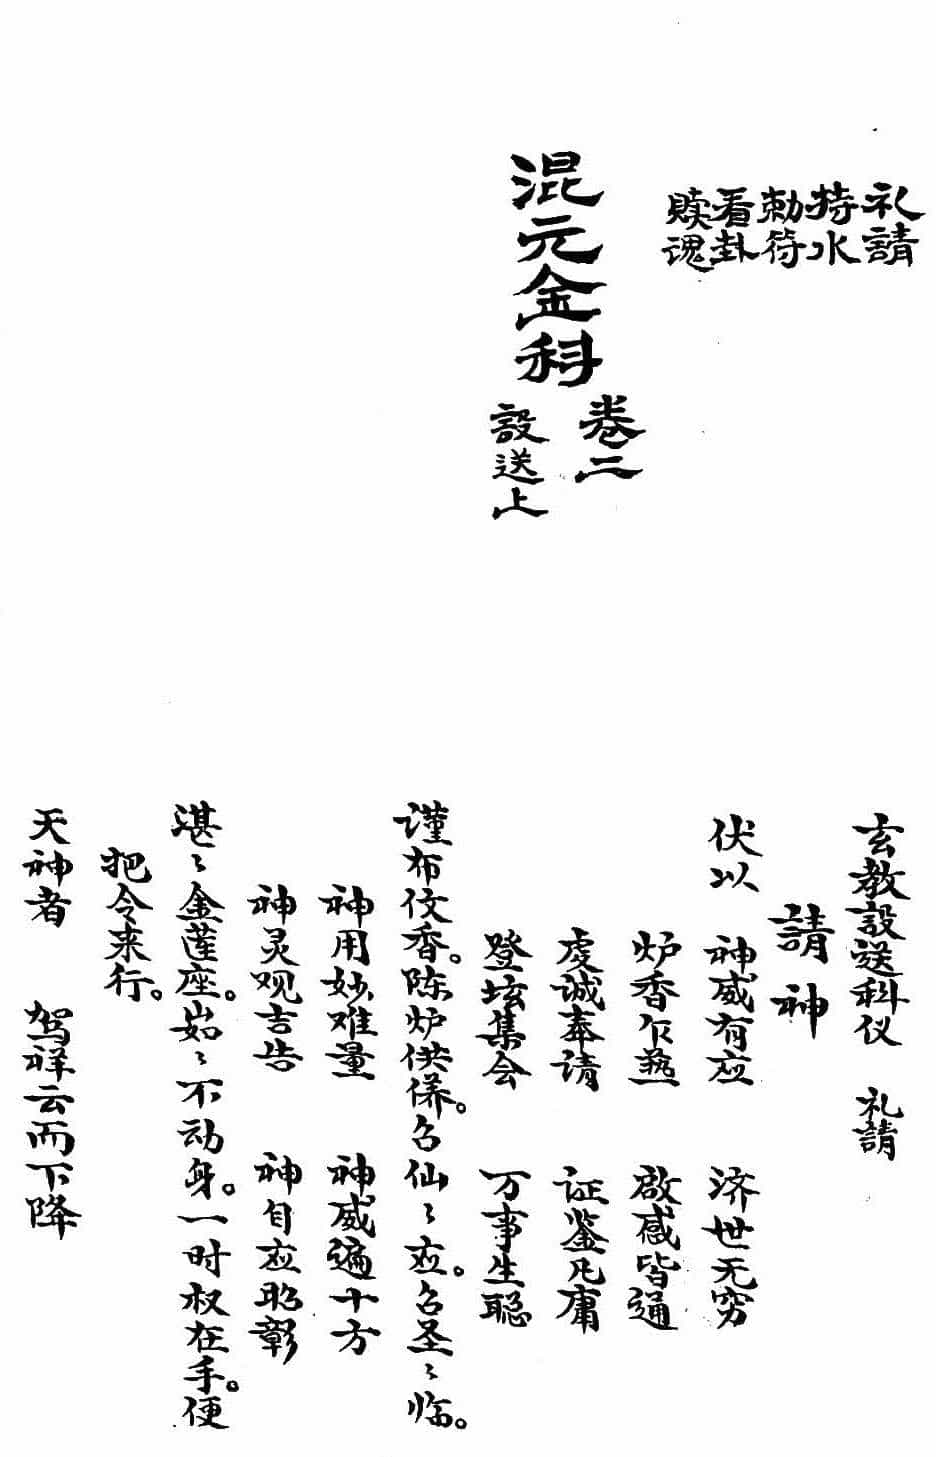 礼請
持水
勅符
看卦
赎魂
混元金科
卷二
設送上
玄教設送科仪 礼請
請神
伏以 神威有应 济世无穷
炉香乍热 啟感皆通
虔诚奉请 证鉴凡庸
登坛集会 万事生聪
谨布伩香。陈炉供养。召仙〻应。召圣〻临。
神用妙难量 神威遍十方
神灵观吉告 神自应昭彰
湛〻金莲座。如〻不动身。一时权在手。便
把令来行。
天神者 驾祥云而下降